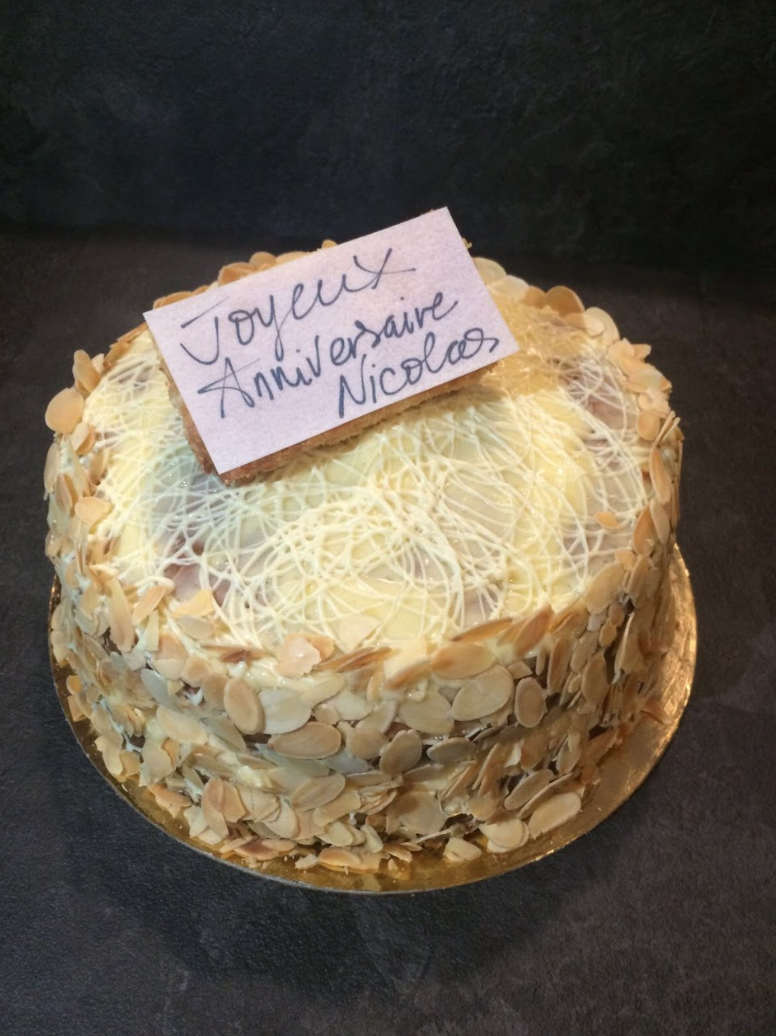 Joyeux
Anniversaire
Nicolas